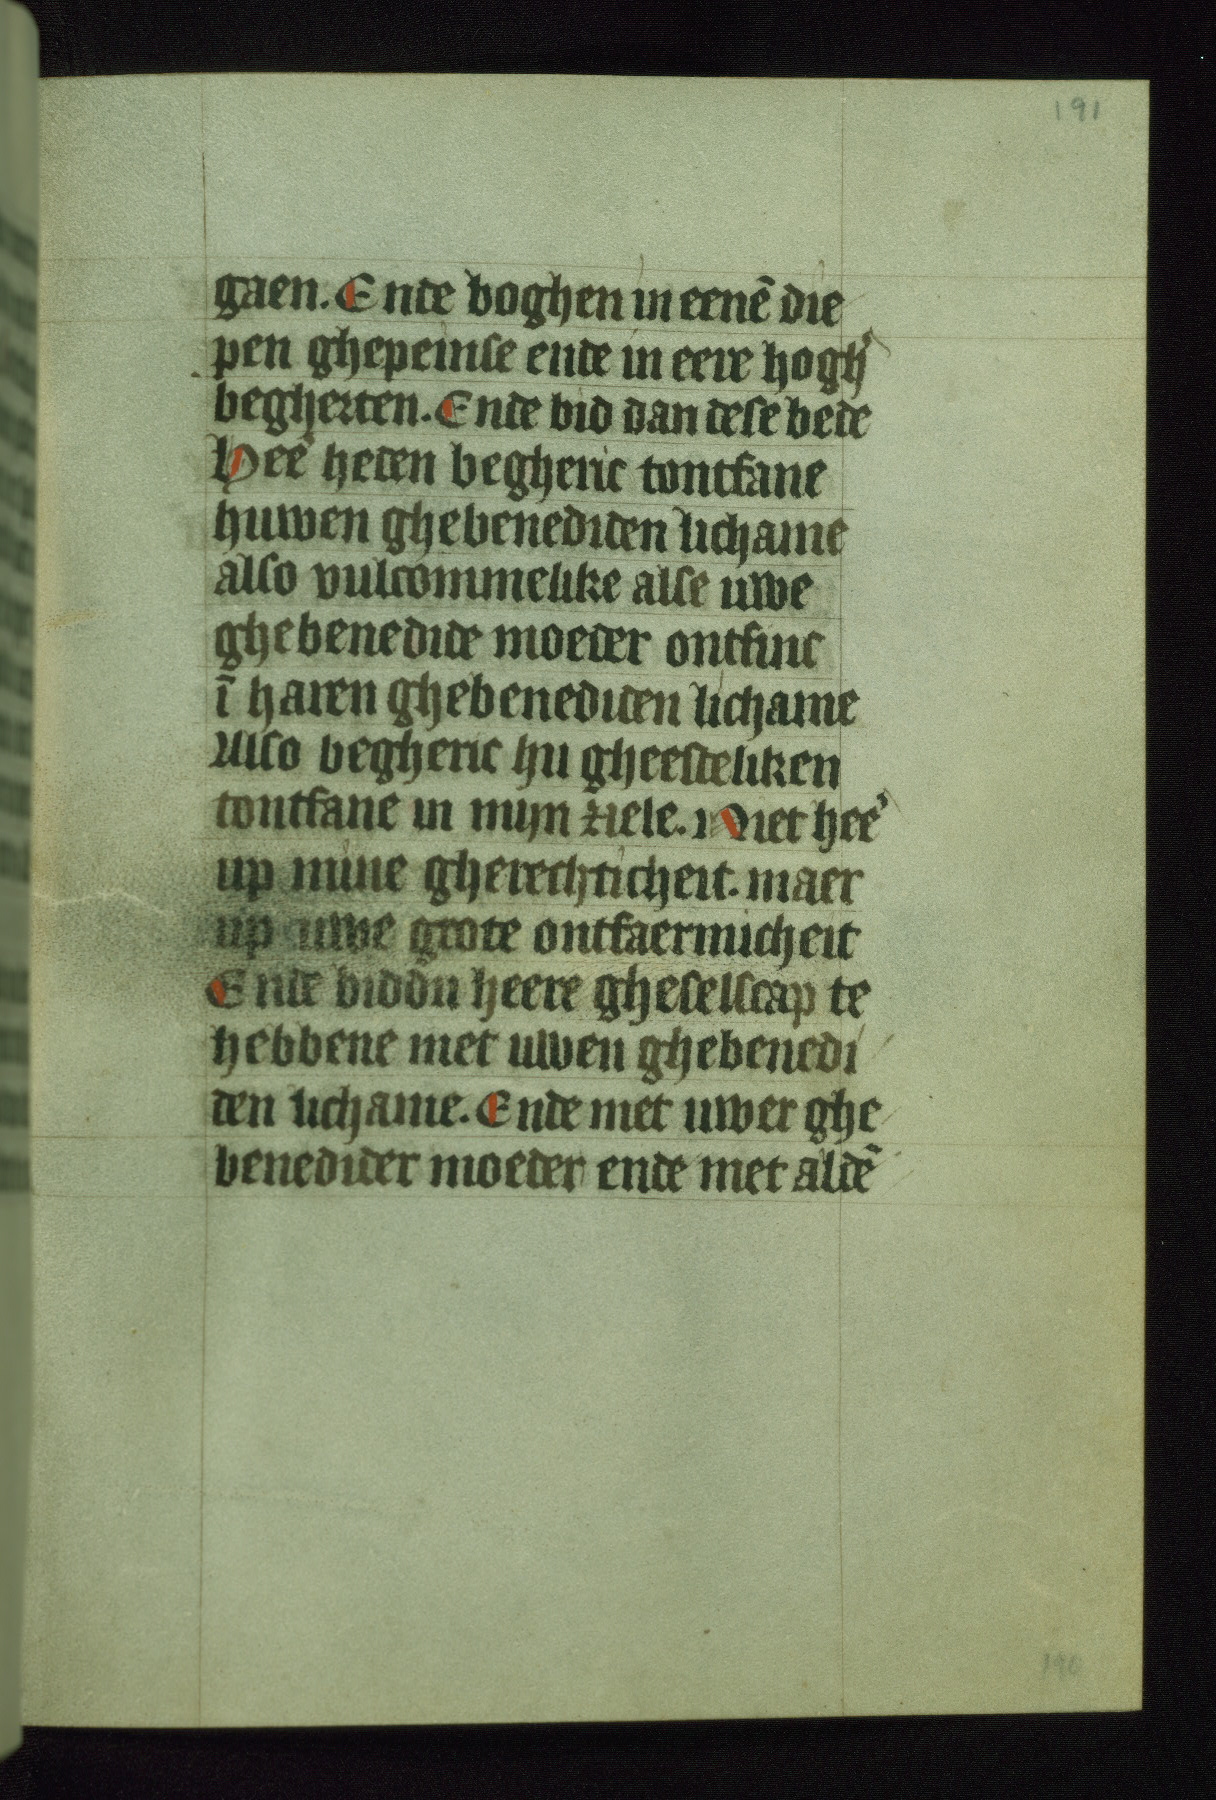 191
gaen. Ende boghen in eenē die
pen ghepeinse ende in eere hogh'
begherten. Ende bid dan dese bede
Hee' heden begheric tontfane
huwen ghebenediden lichame
also vulcommelike alse uwe
ghebenedide moeder ontfinc
ī haren ghebenediden lichame
Also begheric hu gheesteliken
tontfane in mijn ziele. Niet hee'
up mine gherechticheit. maer
up uwe grote ontfaermicheit
Ende biddu heere gheselscap te
hebbene met uwen ghebenedi
den lichame. Ende met uwer ghe
benedider moeder ende met aldē
190